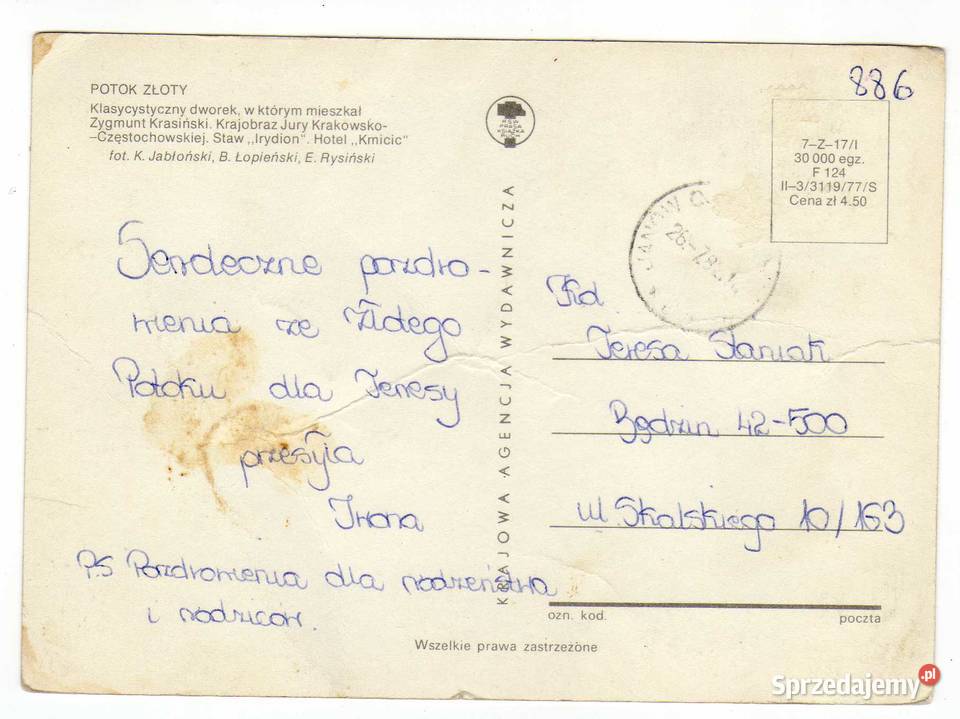 POTOK ZŁOTY
Klasycystyczny dworek, w którym mieszkał
Zygmunt Krasiński. Krajobraz Jury Krakowsko-
-Częstochowskiej. Staw ,,Irydion". Hotel ,,Kmicic"
fot. K. Jabłoński, B. Łopieński, E. Rysiński
Serdeczne pozdro-
wienia ze Złotego
Potoku dla Teresy
przesyła
Iwona
PS Pozdrowienia dla rodzeństwa
i rodziców.
RSW
PRASA
KSIĄŻKA
RUCH
KRAJOWA AGENCJA WYDAWNICZA
886
7-Z-17/I
30 000 egz.
F 124
II-3/3119/77/S
Cena zł 4.50
JANÓW
Teresa Staniak
Będzin 42-500
ul. Skalskiego 10/163
ozn. kod.
poczta
Wszelkie prawa zastrzeżone
Sprzedajemy.pl